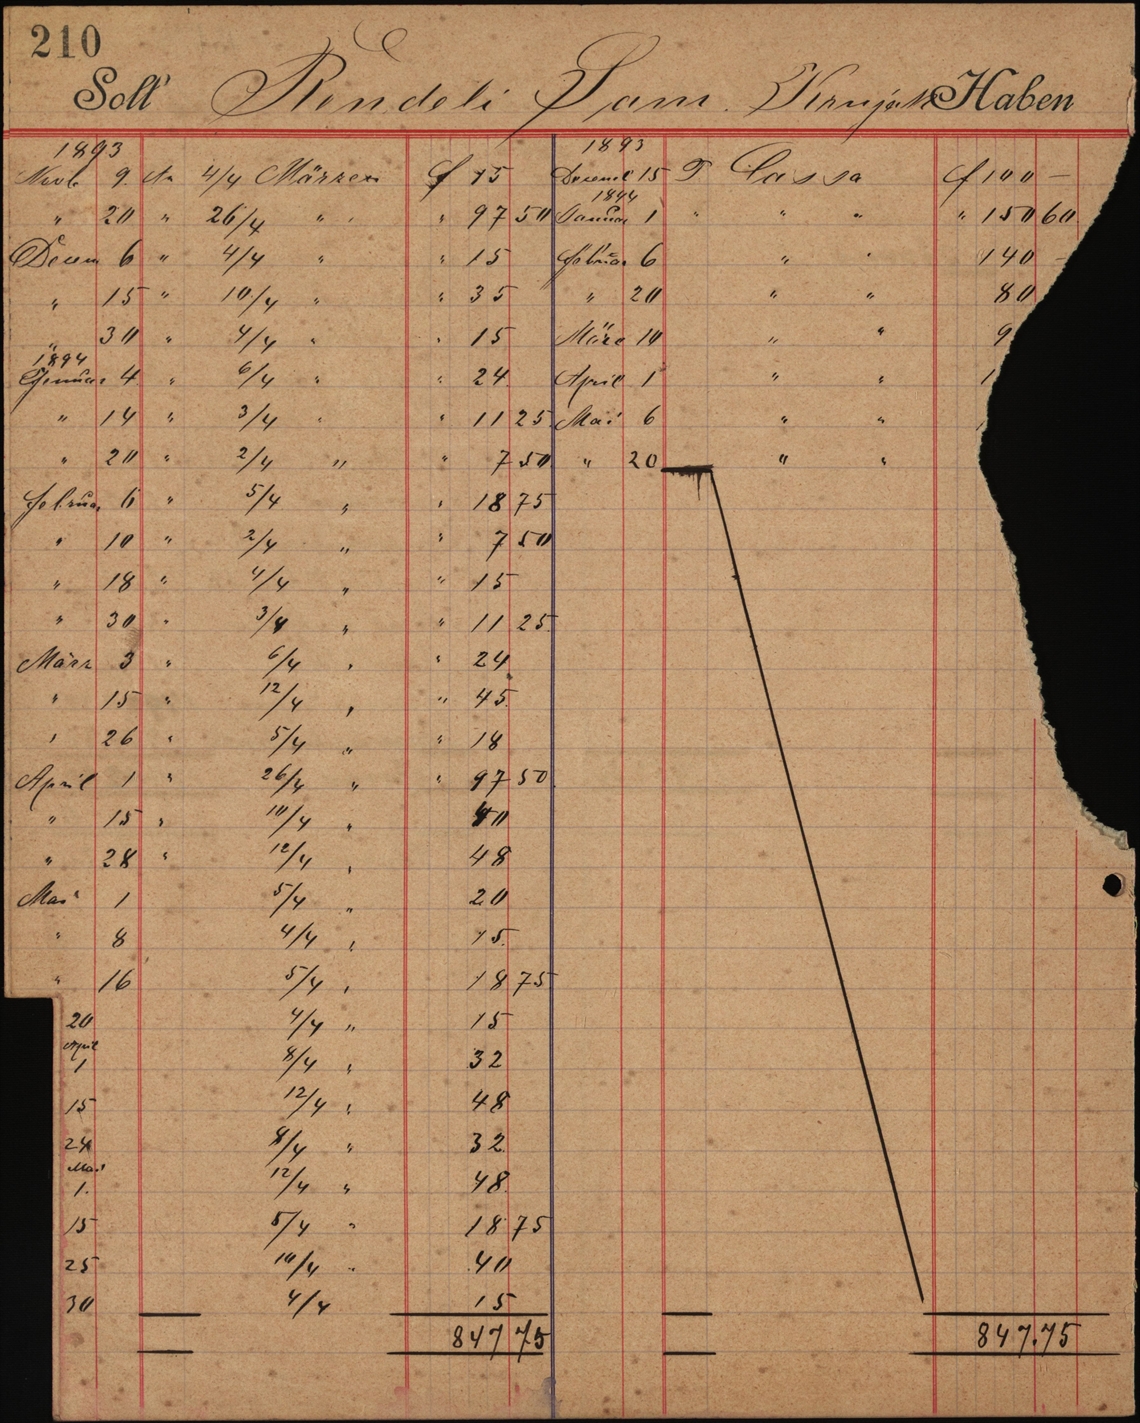 210
Soll Rendeli Sam. Haben
1893
Novb 9. An 4/4 Märzen f 15
" 20 " 26/4 " " 97 50
Decem 6 " 4/4 " " 15
" 15 " 10/4 " " 35
" 30 " 4/4 " " 15
1894
Januar 4 " 6/4 " " 24
" 14 " 3/4 " " 11 25
" 20 " 2/4 " " 7 50
februar 6 " 5/4 " " 18 75
" 10 " 2/4 " " 7 50
" 18 " 4/4 " " 15
" 30 " 3/4 " " 11 25
März 3 " 6/4 " " 24
" 15 " 12/4 " " 45
" 26 " 5/4 " " 18
April 1 " 26/4 " " 97 50
" 15 " 10/4 " 40
" 28 " 12/4 " 48
Mai 1 5/4 " 20
" 8 4/4 " 15
" 16 5/4 " 18 75
20 4/4 " 15
April
1 8/4 " 32
15 12/4 " 48
24 8/4 " 32
Mai
1. 12/4 " 48
15 5/4 " 18 75
25 10/4 " 40
30 4/4 15
847 75
1893
Decemb 15 P Cassa f 100 —
1894
Januar 1 " " " " 150 60
februar 6 " " 140 -
" 20 " " 80
März 10 " " 9
April 1 " " 1
Mai 6 " "
" 20 " "
847.75